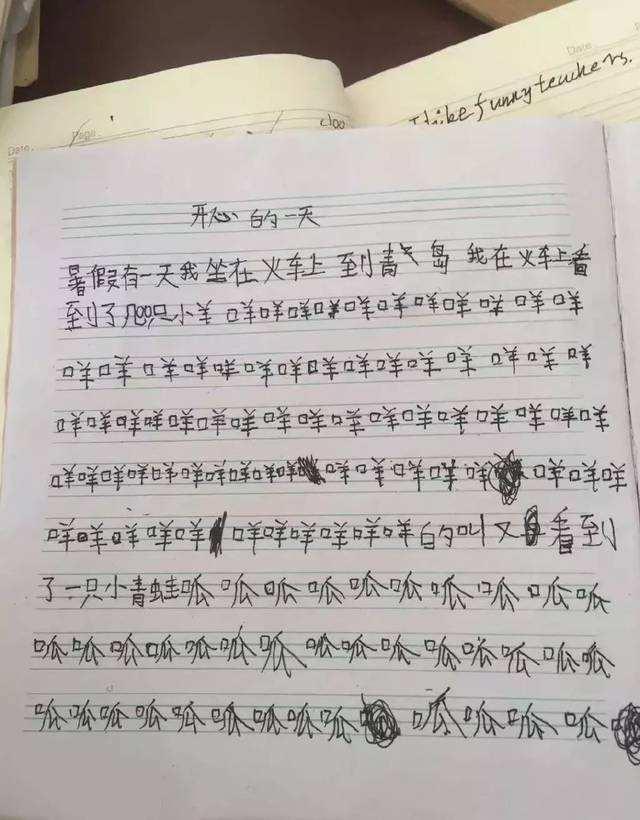 Date
Page
Date
I like funny teachers.
开心的一天
暑假有一天我坐在火车上到青岛我在火车上看
到了几只小羊咩咩咩咩咩咩咩咩咩咩咩
咩咩咩咩咩咩咩咩咩咩咩咩咩咩咩
咩咩咩咩咩咩咩咩咩咩咩咩咩咩咩咩咩
咩咩咩咩咩咩咩咩咩咩咩咩咩咩咩咩咩咩
咩咩咩咩咩咩咩咩咩咩咩的叫又看到
了一只小青蛙呱呱呱呱呱呱呱呱呱呱
呱呱呱呱呱呱呱呱呱呱呱呱呱呱呱
呱呱呱呱呱呱呱呱呱呱呱呱呱